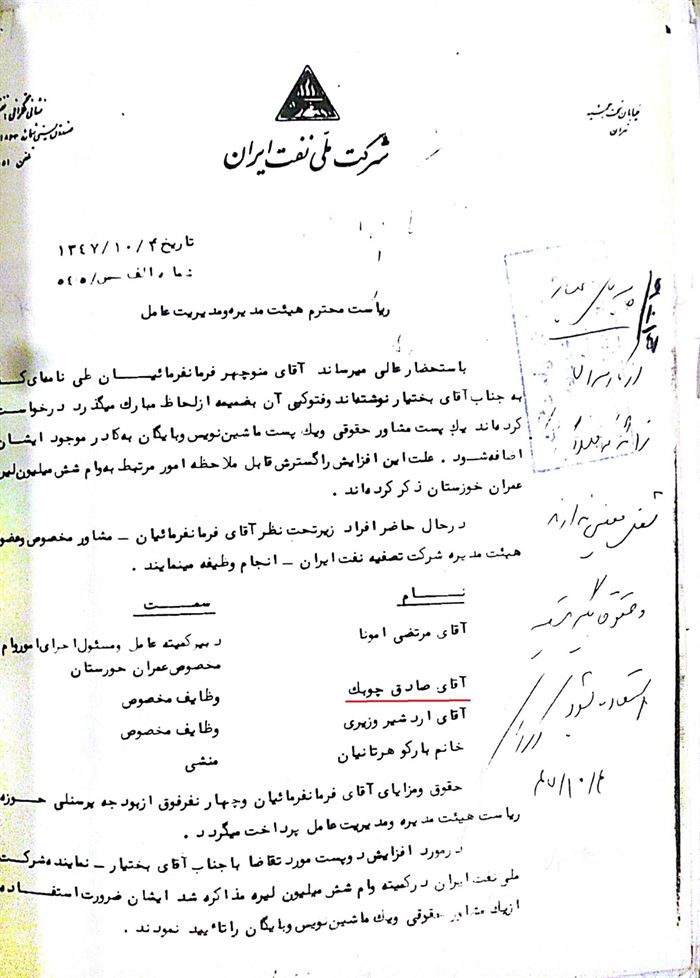 خیابان تخت جمشید
تهران
شرکت ملّی نفت ایران
تاریخ ۱۳٤۷/۱۰/۴
شماره الف س/٥٤٠٥
ریاست محترم هیئت مدیره ومدیریت عامل
باستحضار عالی میرساند آقای منوچهر فرمانفرمائیان طی نامه‌ای که
به جناب آقای بختیار نوشته‌اند وفتوکپی آن بضمیمه ازلحاظ مبارک میگذرد درخواست
کرده‌اند یک پست مشاور حقوقی ویک پست ماشین‌نویس وبایگان به‌کادر موجود ایشان
اضافه‌شود . علت این افزایش راگسترش قابل ملاحظه امور مرتبط به‌وام شش میلیون‌لیره
عمران خوزستان ذکر کرده‌اند .
درحال حاضر افراد زیرتحت نظر آقای فرمانفرمائیان – مشاور مخصوص وعضو
هیئت مدیره شرکت تصفیه نفت ایران – انجام وظیفه مینمایند .
نام سمت
آقای مرتضی امونا دبیرکمیته عامل ومسئول اجرای اموروام
مخصوص عمران خوزستان
آقای صادق چوبک وظایف مخصوص
آقای اردشیر وزیری وظایف مخصوص
خانم بارکو هرتانیان منشی
حقوق ومزایای آقای فرمانفرمائیان وچهار نفرفوق ازبودجه پرسنلی حوزه
ریاست هیئت مدیره ومدیریت عامل پرداخت میگردد .
درمورد افزایش دوپست مورد تقاضا با جناب آقای بختیار – نماینده شرکت
ملی نفت ایران درکمیته وام شش میلیون لیره مذاکره شد ایشان ضرورت استفاده
ازیک مشاور حقوقی ویک ماشین‌نویس وبایگان راتأیید نمودند .
۴۷/۱۰/۴